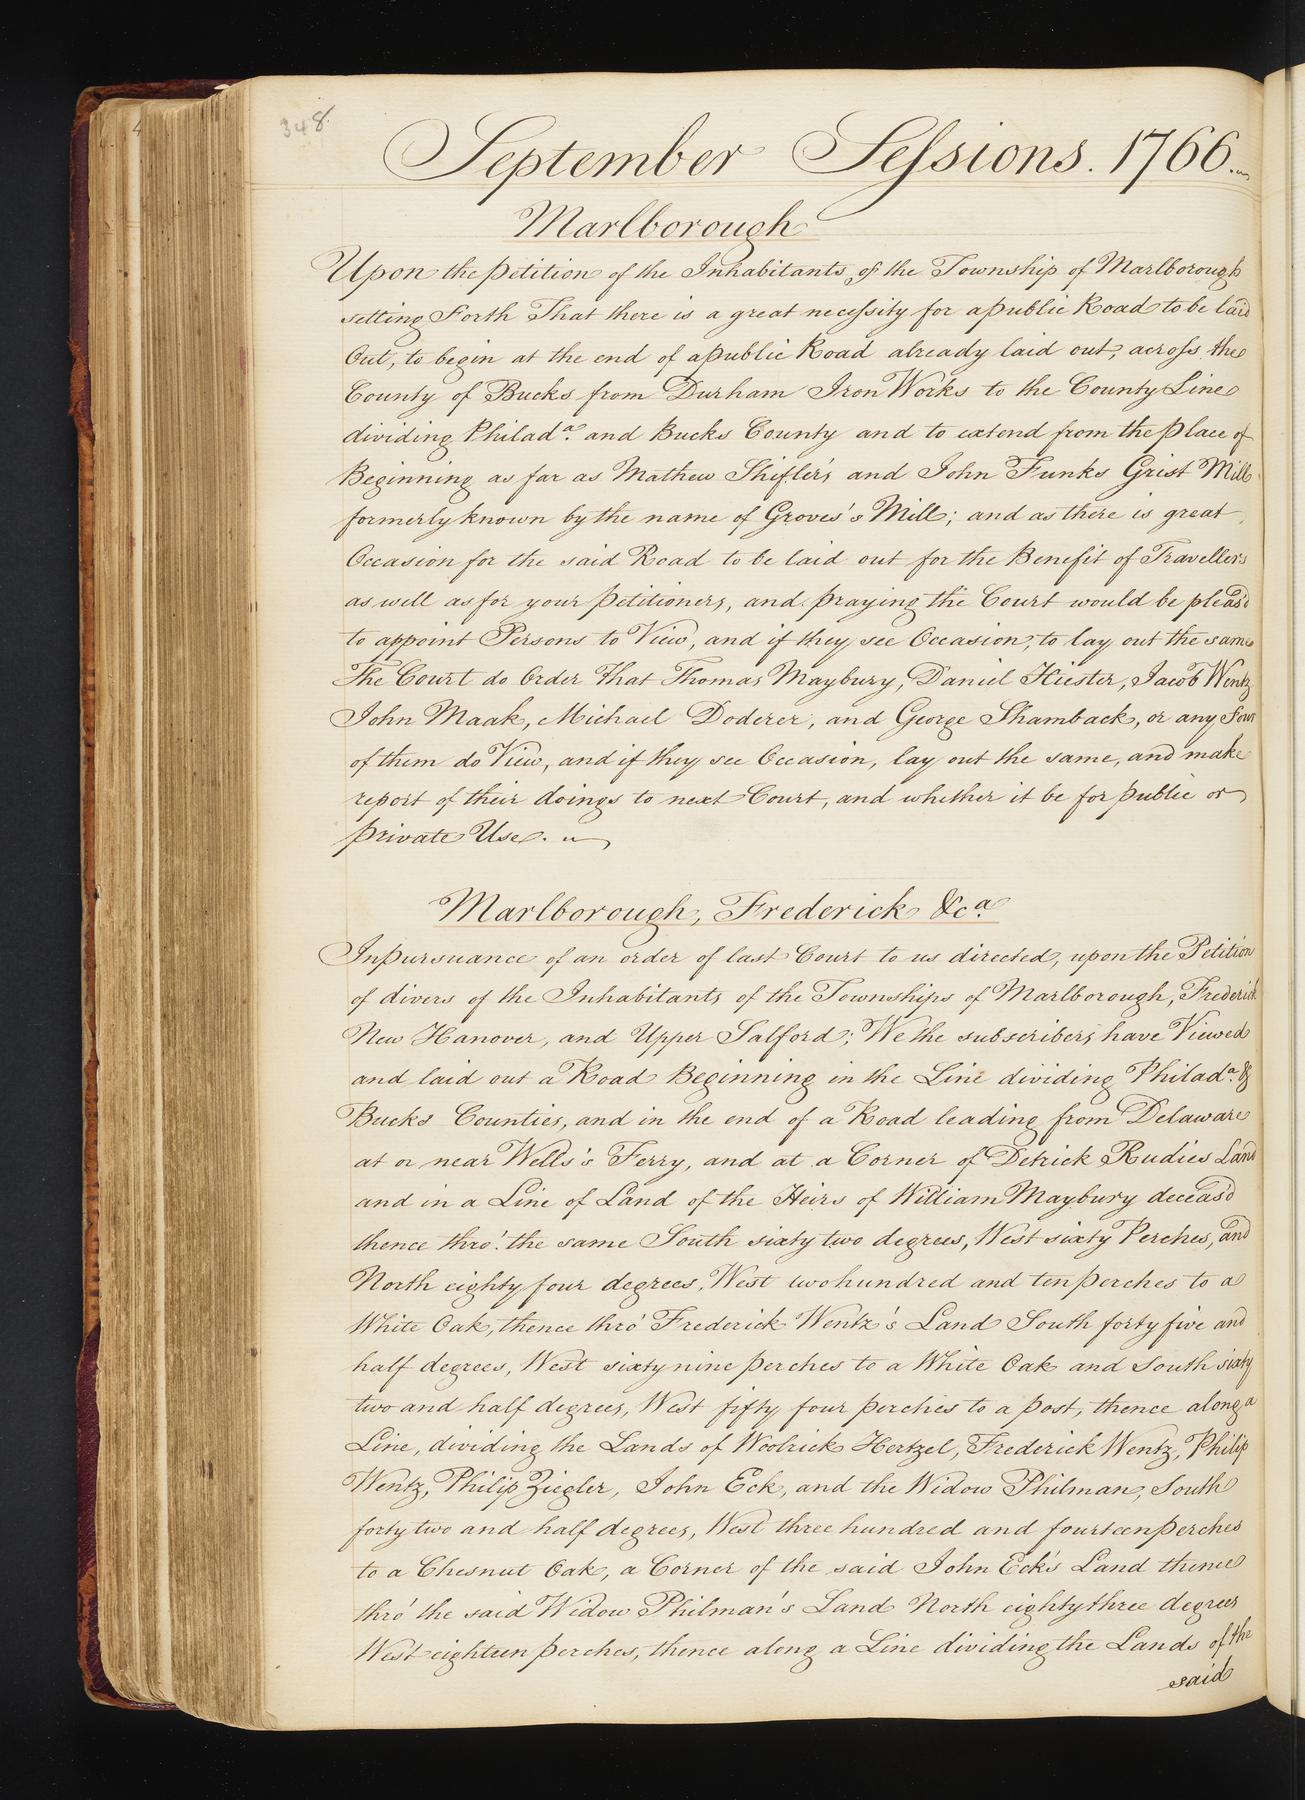 348.
September Sessions. 1766.
Marlborough
Upon the petition of the Inhabitants of the Township of Marlborough
setting Forth That there is a great necessity for a public Road to be laid
Out, to begin at the end of a public Road already laid out, across the
County of Bucks from Durham Iron Works to the County Line
dividing Philada. and Bucks County and to extend from the place of
Beginning as far as Mathew Shifler's and John Funks Grist Mill
formerly known by the name of Groves's Mill; and as there is great
Occasion for the said Road to be laid out for the Benefit of Travellers
as well as for your petitioners, and praying the Court would be pleas'd
to appoint Persons to View, and if they see Occasion, to lay out the same
The Court do Order That Thomas Maybury, Daniel Hiester, Jacob Wentz
John Maak, Michael Doderer, and George Shamback, or any Four
of them do View, and if they see Occasion, lay out the same, and make
report of their doings to next Court, and whether it be for public or
private Use.
Marlborough, Frederick &ca.
In pursuance of an order of last Court to us directed, upon the Petition
of divers of the Inhabitants of the Townships of Marlborough, Frederick
New Hanover, and Upper Salford; We the subscribers have Viewed
and laid out a Road Beginning in the Line dividing Philada. &
Bucks Counties, and in the end of a Road leading from Delaware
at or near Wells's Ferry, and at a Corner of Detrick Rudies Land
and in a Line of Land of the Heirs of William Maybury deceas'd
thence thro'. the same South sixty two degrees, West sixty Perches, and
North eighty four degrees, West two hundred and ten perches to a
White Oak, thence thro' Frederick Wentz's Land South forty five and
half degrees, West sixty nine perches to a White Oak and South sixty
two and half degrees, West fifty four perches to a post, thence along a
Line, dividing the Lands of Woolrick Hertzel, Frederick Wentz, Philip
Wentz, Philip Ziegler, John Eck, and the Widow Philman, South
forty two and half degrees, West three hundred and fourteen perches
to a Chesnut Oak, a Corner of the said John Eck's Land thence
thro' the said Widow Philman's Land North eighty three degrees
West eighteen perches, thence along a Line dividing the Lands of the
said